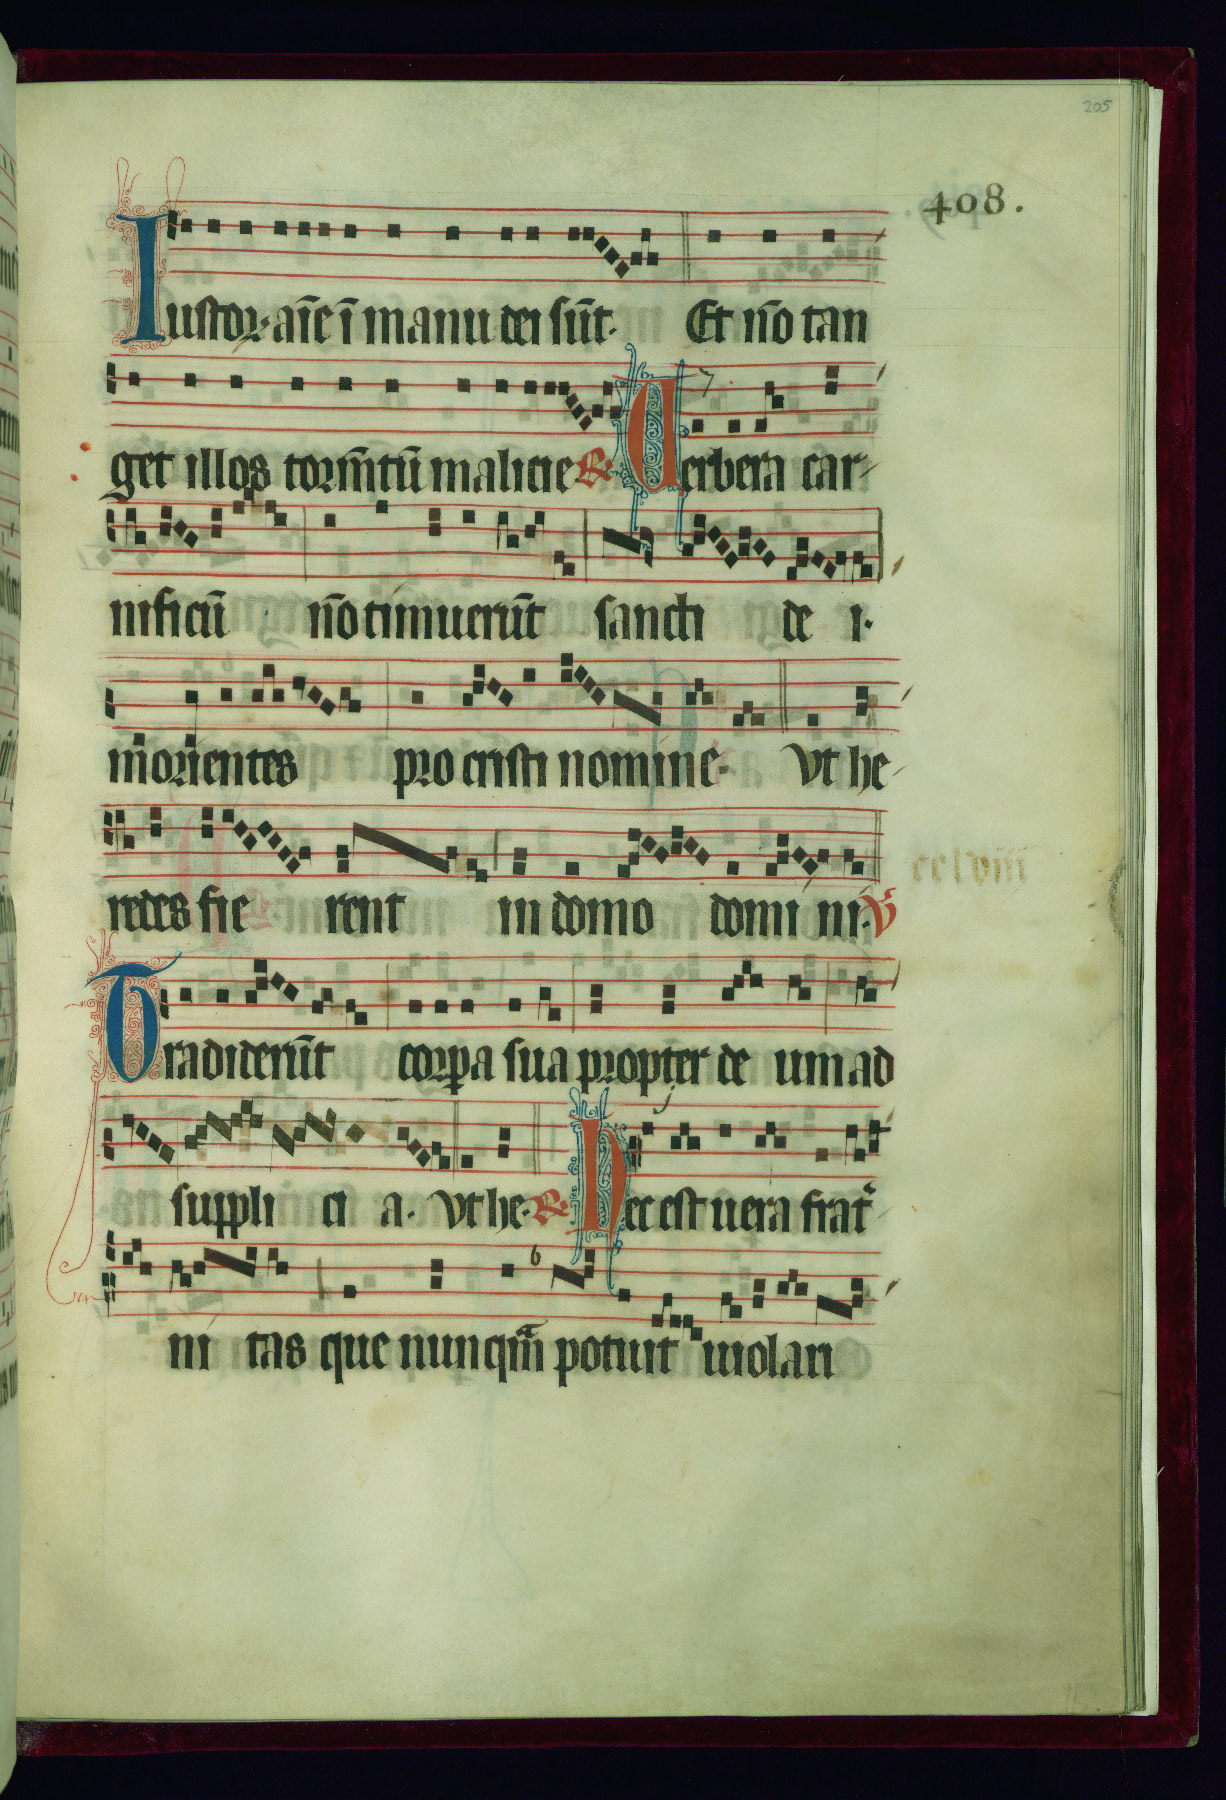 205
408.
Iustoꝝ·aīe ī manu dei sūt· Et nō tan
get illos torm̄tū malicie ℟ Uerbera car-
nificū nō timuerūt sancti de i·
morientes pro cristi nomine· Vt he-
redes fie rent in domo domi ni· ℣
Tradiderūt corꝑa sua propter de um ad
suppli ci a· Vt he· ℟ Hec est uera frat̉
ni tas que nunqᷓm potuit uiolari